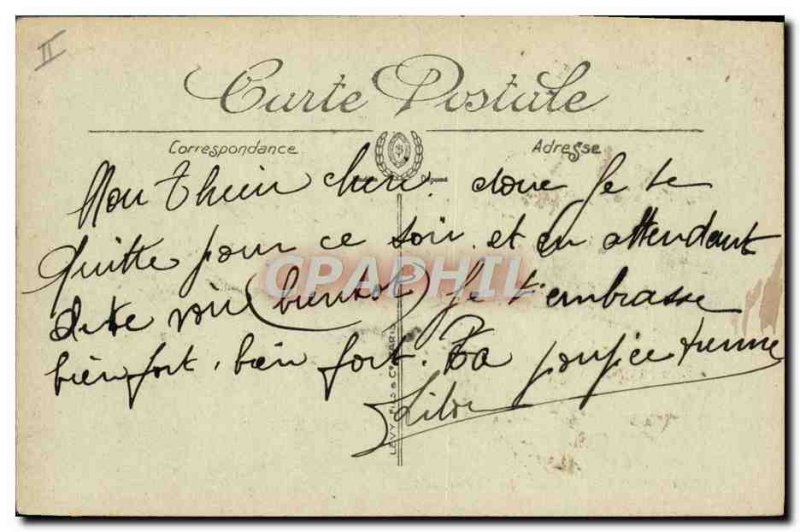 II
Carte Postale
Correspondance
Adresse
Mon cheri. donc je te
quitte pour ce soir. et en attendant
de te voir (bientot) Je t'embrasse
bien fort, bien fort. Ta
CPAPHIL
LEVY FILS & Cie PARIS